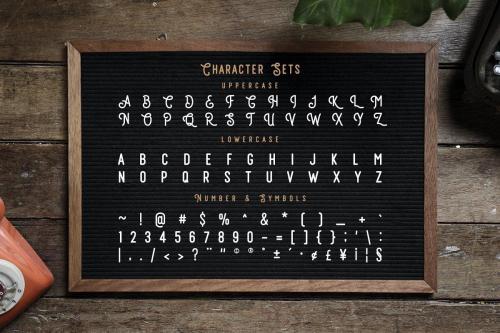 Character Sets
UPPERCASE
A B C D E F G H I J K L M
N O P Q R S T U V W X Y Z
LOWERCASE
A B C D E F G H I J K L M
N O P Q R S T U V W X Y Z
Number & Symbols
~ ! @ # $ % ^ & * ( ) _ + `
1 2 3 4 5 6 7 8 9 0 - = [ ] { } ; ' \ :
| . . / < > ? " " © ® ° ± ´ · ¢ £ ¥ ¡ ¦ §